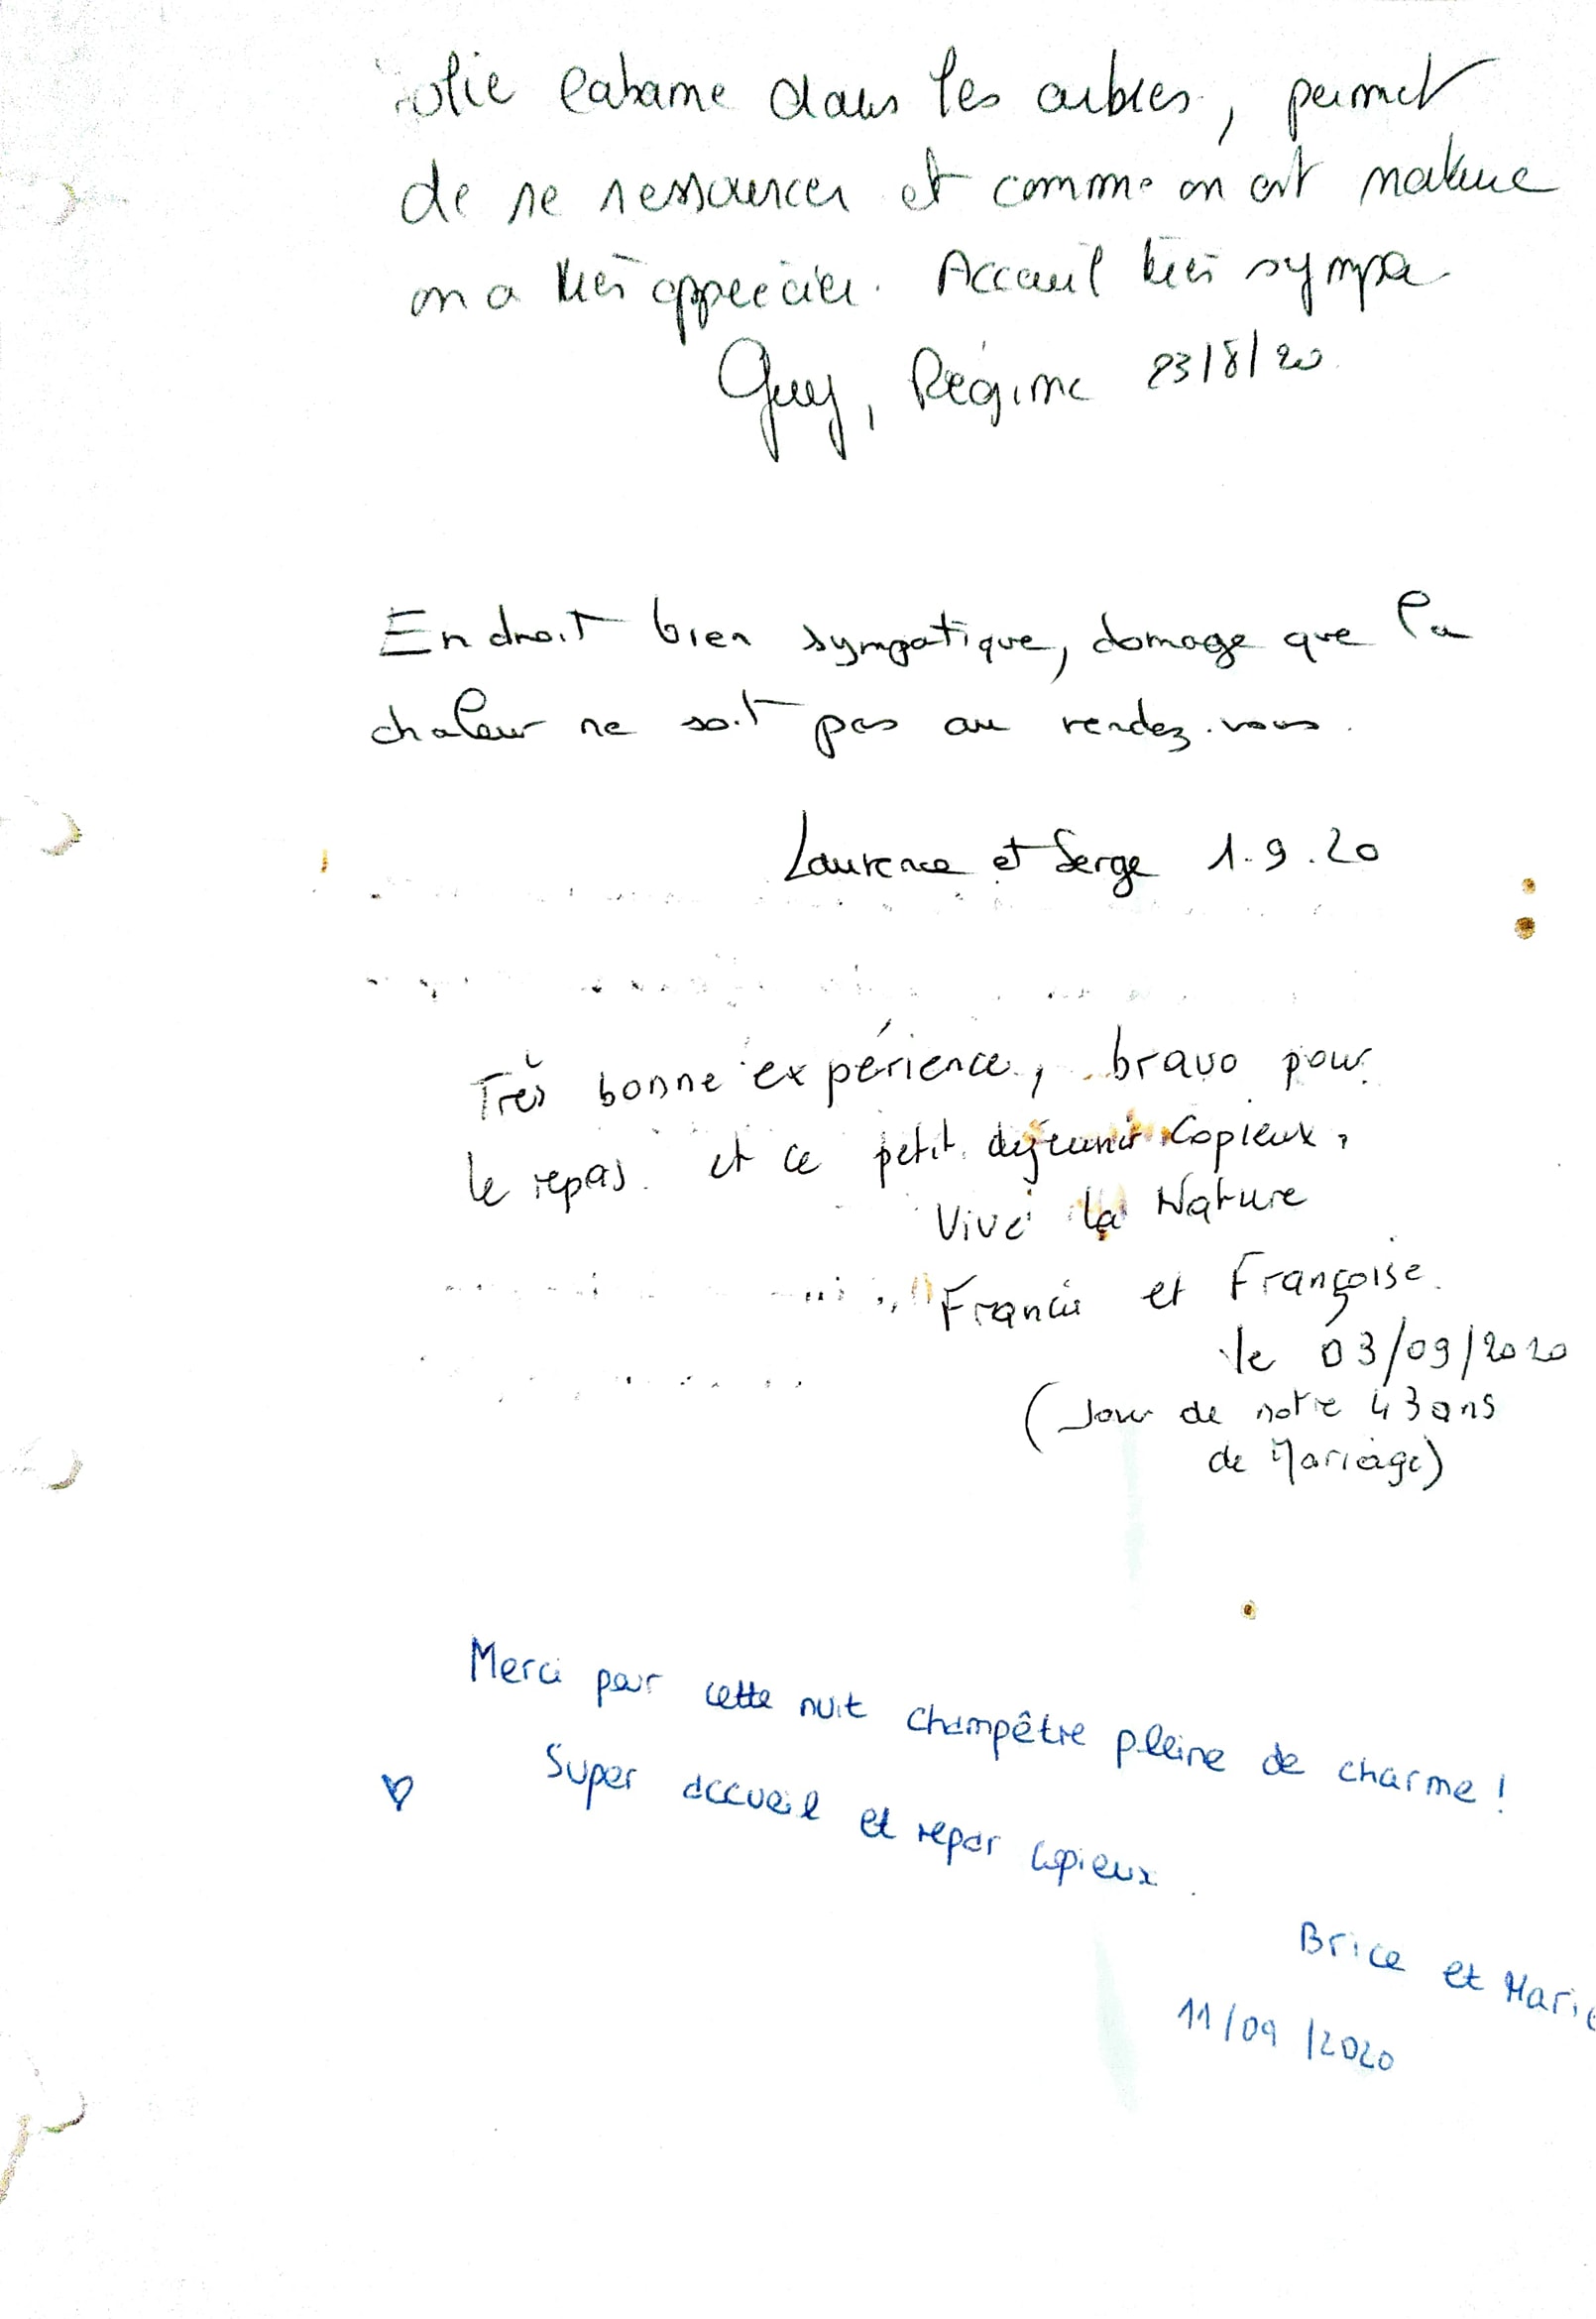 Jolie cabane dans les arbres, permet
de se ressourcer et comme on est nature
on a très apprécier. Accueil très sympa
Guy, Régine 23/8/20
Endroit bien sympatique, domage que la
chaleur ne soit pas au rendez-vous.
Laurence et Serge 1.9.20
Très bonne expérience, bravo pour
le repas et ce petit déjeunir copieux,
Vive la Nature
Francis et Françoise.
le 03/09/2020
(Jour de notre 43 ans
de Mariage)
Merci pour cette nuit champêtre pleine de charme !
♡ Super accueil et repas copieux.
Brice et Marie
11/09/2020